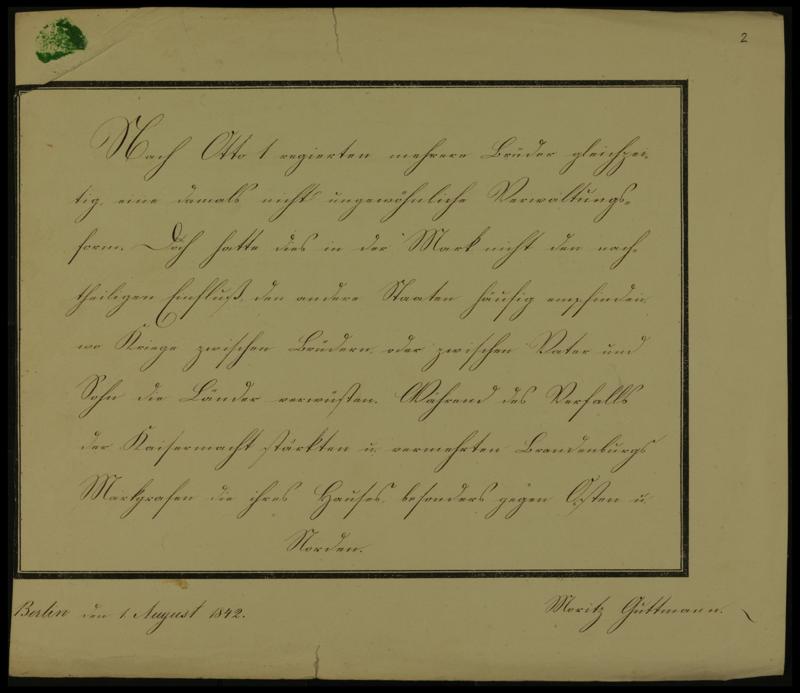 2
Nach Otto 1 regierten mehrere Brüder gleichzei-
tig, eine damals nicht ungewöhnliche Verwaltungs-
form. Doch hatte dies in der Mark nicht den nach-
theiligen Einfluß, den andere Staaten häufig empfinden,
wo Kriege zwischen Brüdern, oder zwischen Vater und
Sohn die Länder verwüsten. Während des Verfalls
der Kaisermacht stärkten u. vermehrten Brandenburgs
Markgrafen die ihres Hauses, besonders gegen Osten u.
Norden.
Berlin den 1. August 1842.
Moritz Guttmann.